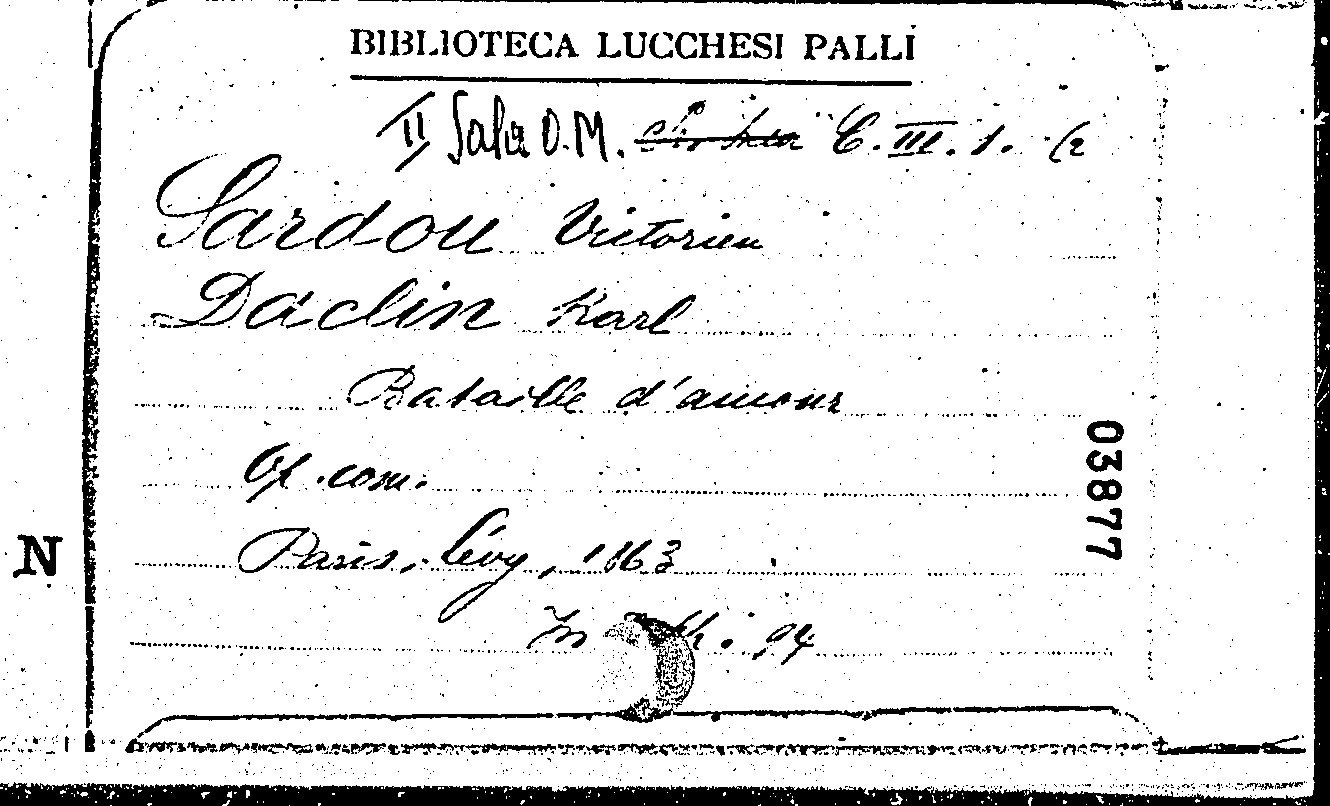 BIBLIOTECA LUCCHESI PALLI
II Sala O.M. C. III. 1. (2
Sardou Victorien
Daclin Karl
Bataille d'amour
Op. com.
Paris, Lévy, 1863
In 94
03877
N